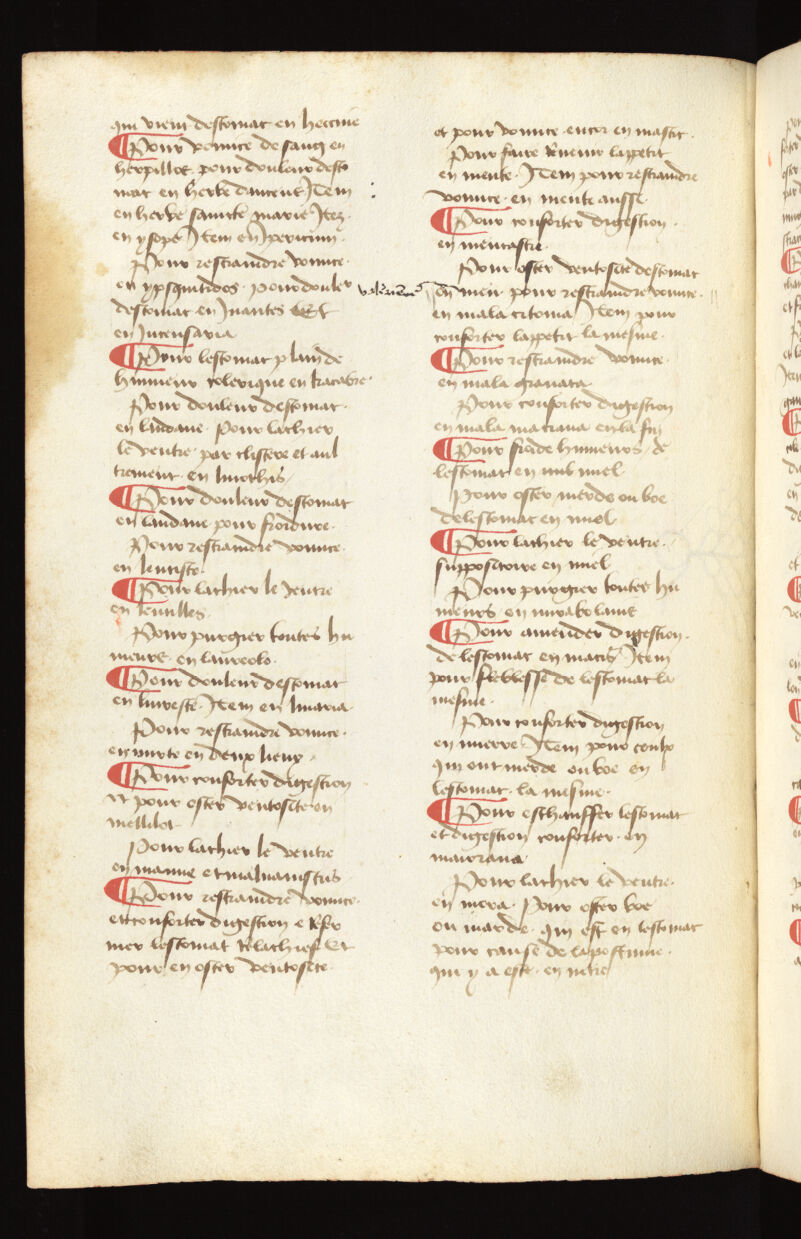 qui vient destomac en
¶ Pour vomite de sang en
herpillot pour douleur desto
mac en herbe Item
en herbe saincte marie Item
en ysope Item en ypericum
Pour restraindre vomite
en pour douleur
destomac en Et
en
¶ Pour lestomac
humeur colerique en
Pour douleur destomac
en laudane Pour lachier
le ventre par clistere et aul
trement en
¶ Pour douleur destomac
en laudane pour froidure
Pour restraindre vomite
en lentisce
¶ Pour lachier le ventre
en lentilles
Pour purgier toutes hu
meurs en laureole
¶ Pour douleur destomac
en Item en linaria
Pour restraindre vomite
en mirte en deux lieux
¶ Pour conforter digestion
et pour oster ventosite en
mellilot
Pour lachier le ventre
en manne et malvaviscus
¶ Pour restraindre vomite
et conforter digestion e
mer lestomac Et
pour en oster ventosite
et pour vomite encor en mastic
Pour faire lappetit
en mente Item pour restraindre
vomite en mente aussi
¶ Pour conforter digestion
en mentastre
Pour oster ventosite destomac
en meu pour restraindre vomite
en mala citonia Item pour
conforter lappetit la mesme
¶ Pour restraindre vomite
en mala granata
Pour conforter digestion
en mala maciana en la fin
¶ Pour froide humeurs de
lestomac en miel
Pour oster merde ou boe
de lestomac en miel
¶ Pour lachier le ventre
suppositoire en miel
Pour purgier toutes hu
meurs en mirabolans
¶ Pour amender digestion
de lestomac en macis Item
pour fleblesse de lestomac la
mesme
Pour conforter digestion
en mierre Item pour ceulx
qui ont merde ou boe en
lestomac la mesme
¶ Pour eschauffer lestomac
et digestion conforter en
maiorana
Pour lachier le ventre
en mora Pour oster boe
ou marde qui est en lestomac
pour cause de lapostume
qui y a este en nitre